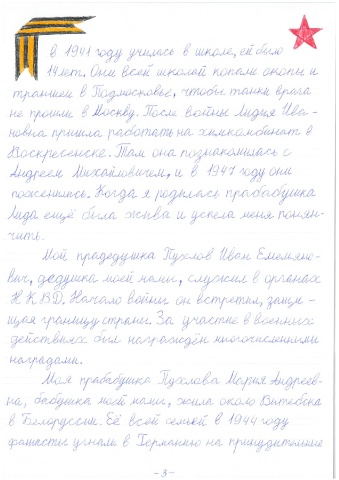 в 1941 году училась в школе, ей было
14 лет. Они всей школой копали окопы и
траншеи в Подмосковье, чтобы танки врага
не прошли в Москву. После войны Лидия Ива-
новна пришла работать на химкомбинат в
Воскресенске. Там она познакомилась с
Андреем Михайловичем, и в 1947 году они
поженились. Когда я родилась прабабушка
Лида ещё была жива и успела меня понян-
чить.
Мой прадедушка Пухлов Иван Емельяно-
вич, дедушка моей мамы, служил в органах
Н К В Д. Начало войны он встретил, защи-
щая границу страны. За участие в военных
действиях был награждён многочисленными
наградами.
Моя прабабушка Пухлова Мария Андреев-
на, бабушка моей мамы, жила около Витебска
в Белоруссии. Её всей семьей в 1944 году
фашисты угнали в Германию на принудительные
- 3 -